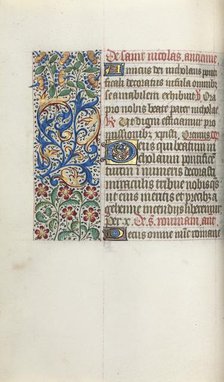 De saint nicolas, antienne
Amicus dei nicholaus pontifi
cali decoratus insula omnibus
se amabilem exhibuit V Ora
pro nobis beate pater nicholae
R Ut digni efficiamur pro
missionibus xpisti, Oremus Or
Deus qui beatum ni
cholaum pontifice
tuum innumeris decorasti
miraculis tribue nobis
ut eius meritis et precibus a
gehenne incendiis liberemur
Per x. De s. rommain, ane
Deus omne mundi romane